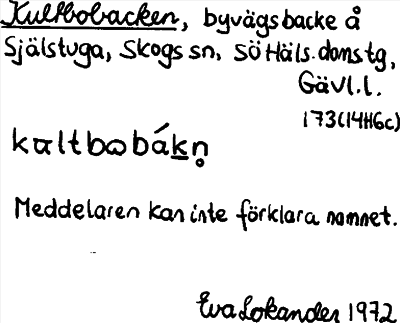 Kultbobacken, byvägsbacke å
Själstuga, Skogs sn, SöHäls.doms.tg,
Gävl.l.
173(14H6c)
kɑltbωbákn̥
Meddelaren kan inte förklara namnet.
Eva Lokander 1972